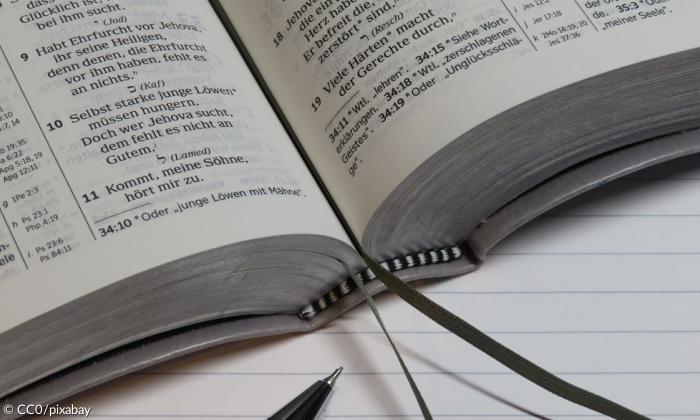 dass
Glücklich ist
bei ihm sucht.
י (Jod)
9 Habt Ehrfurcht vor Jehova,
ihr seine Heiligen,
denn denen, die Ehrfurcht
vor ihm haben, fehlt es
an nichts.h
כ (Kaf)
10 Selbst starke junge Löwen*
müssen hungern.
Doch wer Jehova sucht,
dem fehlt es nicht an
Gutem.i
ל (Lamed)
11 Kommt, meine Söhne,
hört mir zu.
34:10 *Oder „junge Löwen mit Mähne“.
Apg 5:18, 19
Apg 12:11
g 1Pe 2:3
h Ps 23:1
Php 4:19
i Ps 23:6
Ps 84:11
18 Jehova
die ein
Herz habe
Er befreit die,
zerstört* sind.
ר (Resch)
19 Viele Härten* macht
der Gerechte durch.
34:11 *Wtl. „lehren“. 34:15 *Siehe Wort-
erklärungen. 34:18 *Wtl. „zerschlagenen
Geistes“. 34:19 *Oder „Unglücksschlä-
ge“.
Jer 17:18
j 2Mo 14:19, 20
Jes 37:36
der 35:3 *Oder
„meiner Seele“.
© CC0/pixabay